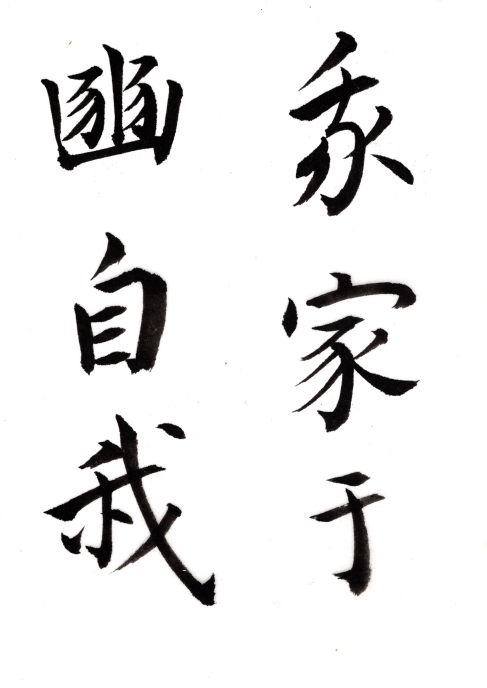 家于
豳自我